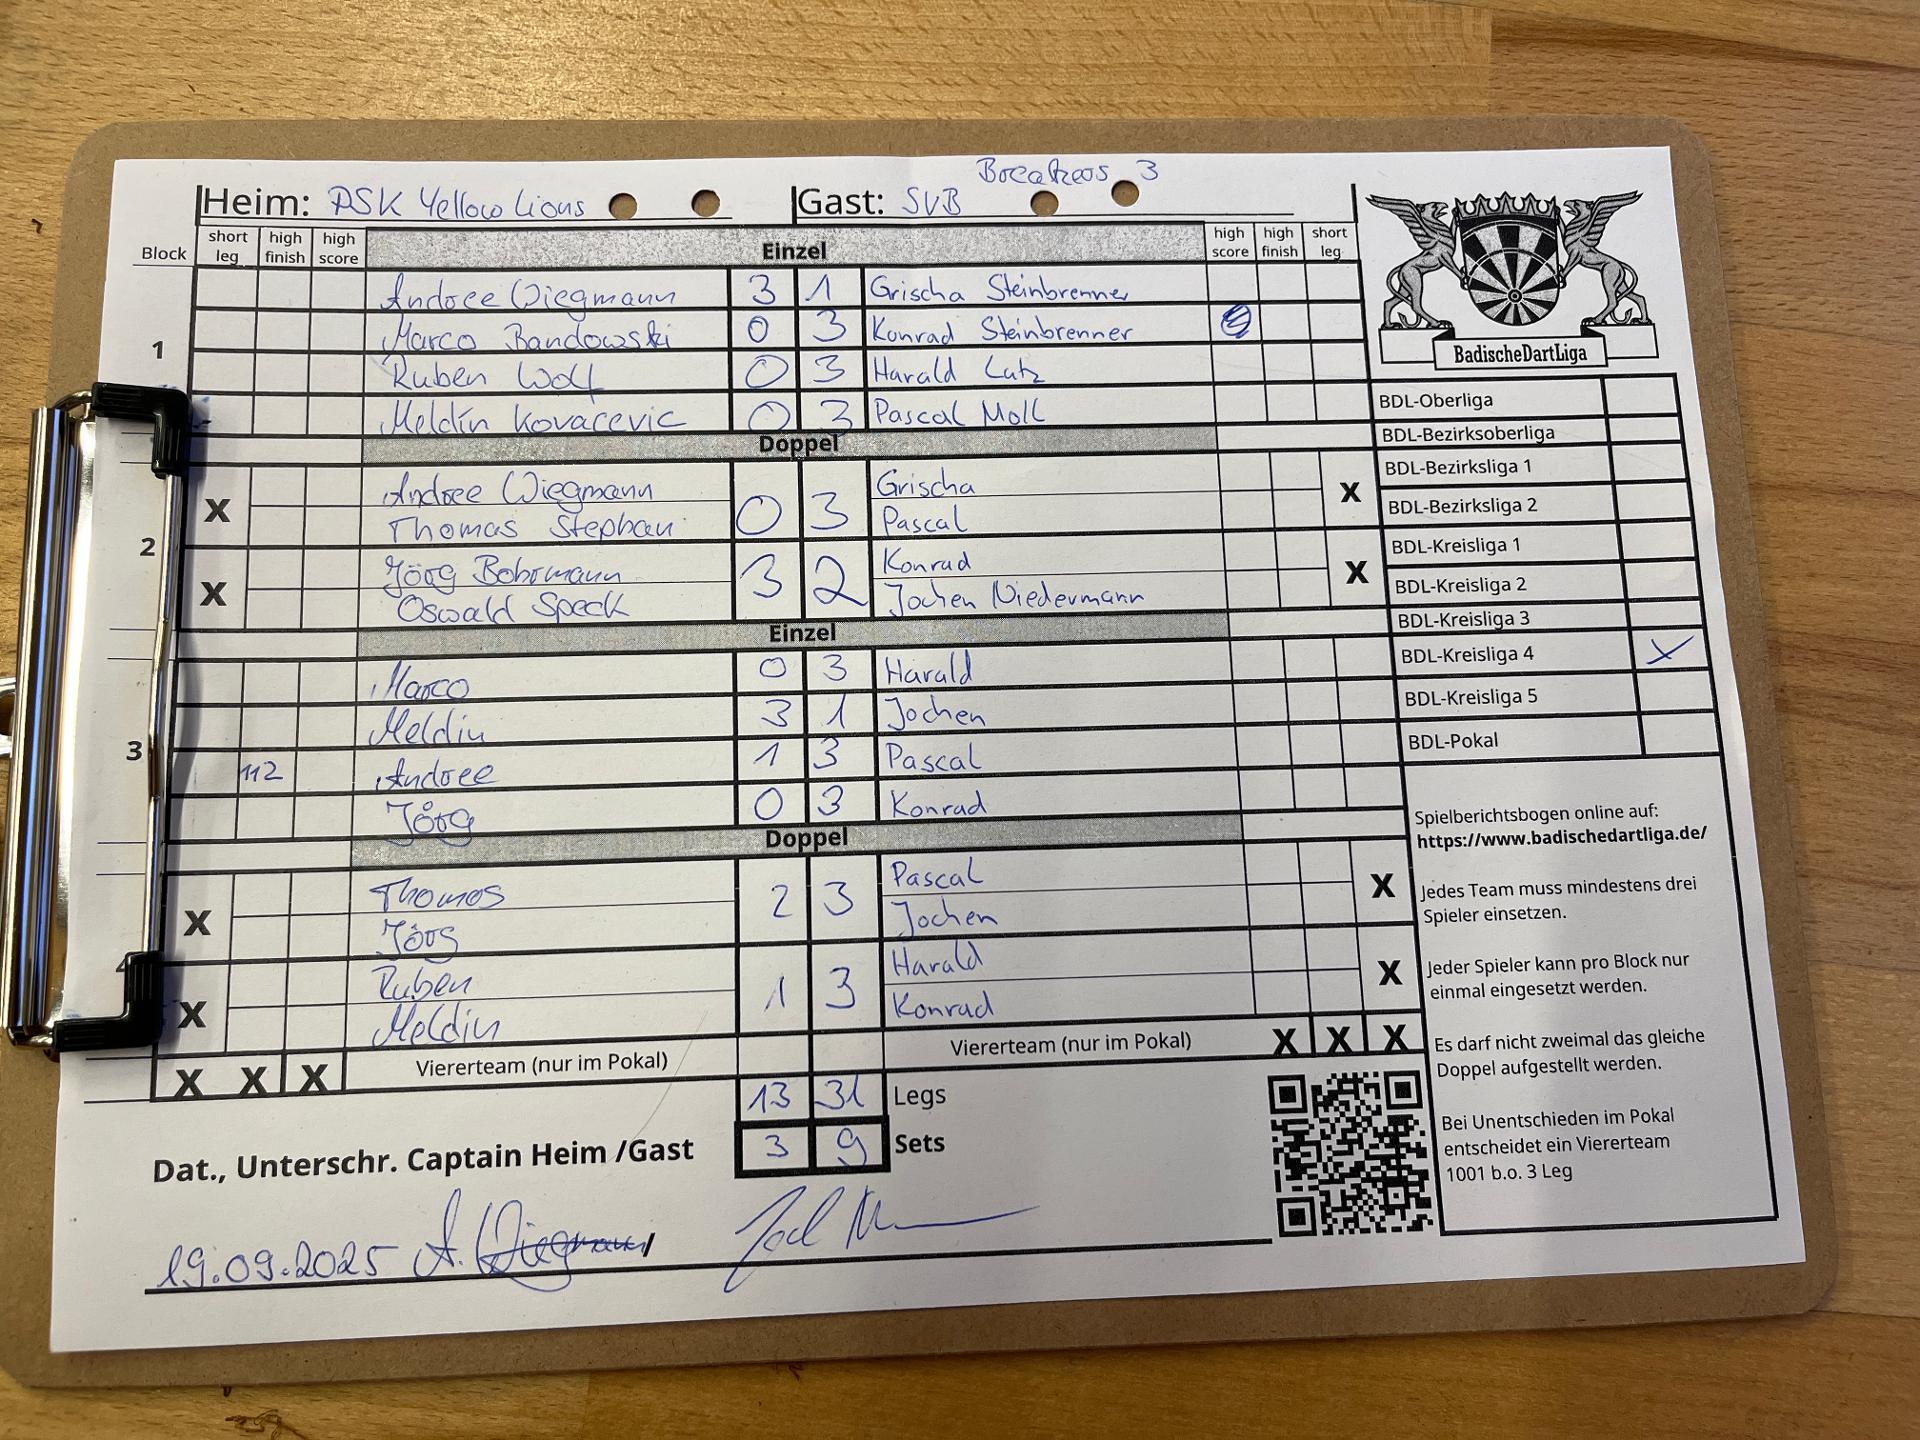 Breakers 3
Heim: PSK Yellow Lions Gast: SVB
Block short leg high finish high score Einzel high score high finish short leg
1
Andree Wiegmann 3 1 Grischa Steinbrenner
Marco Bandowski 0 3 Konrad Steinbrenner
Ruben Wolf 0 3 Harald Lutz
Meldin Kovacevic 0 3 Pascal Moll
Doppel
2
X Andree Wiegmann 0 3 Grischa X
Thomas Stephan Pascal
X Jörg Bohrmann 3 2 Konrad X
Oswald Speck Jochen Niedermann
Einzel
3
Marco 0 3 Harald
Meldin 3 1 Jochen
112 Andree 1 3 Pascal
Jörg 0 3 Konrad
Doppel
4
X Thomas 2 3 Pascal X
Jörg Jochen
X Ruben 1 3 Harald X
Meldin Konrad
X X X Viererteam (nur im Pokal) Viererteam (nur im Pokal) X X X
13 31 Legs
3 9 Sets
Dat., Unterschr. Captain Heim /Gast
19.09.2025 A. Wiegmann
BadischeDartLiga
BDL-Oberliga
BDL-Bezirksoberliga
BDL-Bezirksliga 1
BDL-Bezirksliga 2
BDL-Kreisliga 1
BDL-Kreisliga 2
BDL-Kreisliga 3
BDL-Kreisliga 4 X
BDL-Kreisliga 5
BDL-Pokal
Spielberichtsbogen online auf:
https://www.badischedartliga.de/
Jedes Team muss mindestens drei
Spieler einsetzen.
Jeder Spieler kann pro Block nur
einmal eingesetzt werden.
Es darf nicht zweimal das gleiche
Doppel aufgestellt werden.
Bei Unentschieden im Pokal
entscheidet ein Viererteam
1001 b.o. 3 Leg